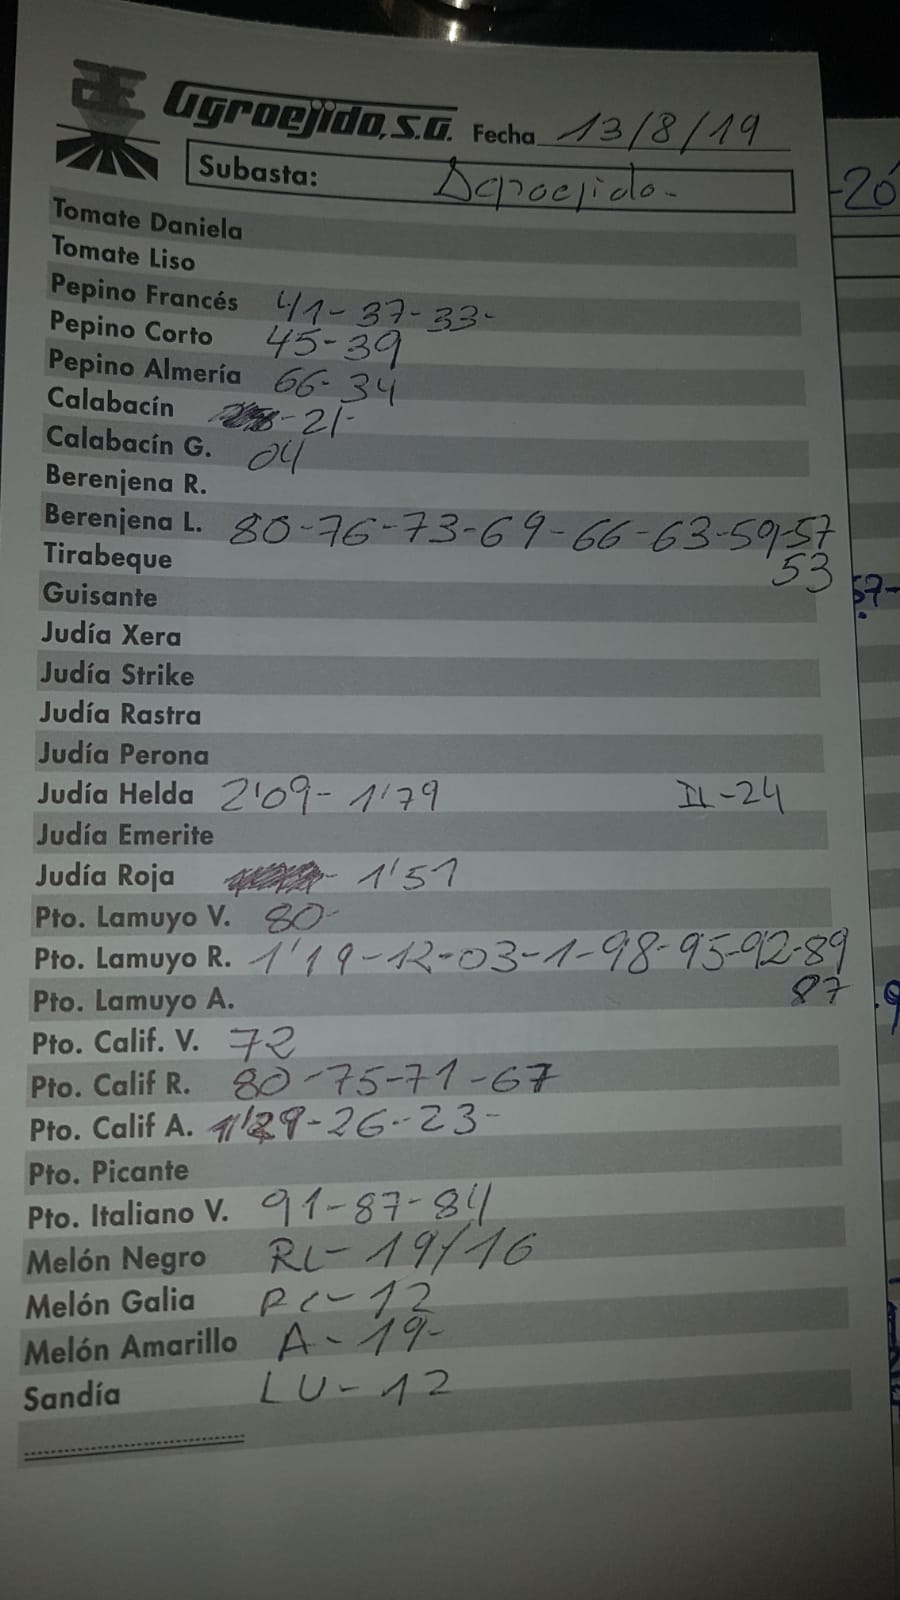 Agroejido, S.A. Fecha 13/8/19
Subasta: Agroejido-
Tomate Daniela
Tomate Liso
Pepino Francés 41-37-33-
Pepino Corto 45-39
Pepino Almería 66-34
Calabacín -21-
Calabacín G. 04
Berenjena R.
Berenjena L. 80-76-73-69-66-63-59-57
53
Tirabeque
Guisante
Judía Xera
Judía Strike
Judía Rastra
Judía Perona
Judía Helda 2'09-1'79 II-24
Judía Emerite
Judía Roja - 1'51
Pto. Lamuyo V. 80-
Pto. Lamuyo R. 1'19-12-03-1-98-95-92-89
87
Pto. Lamuyo A.
Pto. Calif. V. 72
Pto. Calif R. 80-75-71-67
Pto. Calif A. 1'29-26-23-
Pto. Picante
Pto. Italiano V. 91-87-84
Melón Negro RL-19/16
Melón Galia 12
Melón Amarillo A-19-
Sandía LU-12
-20
57-